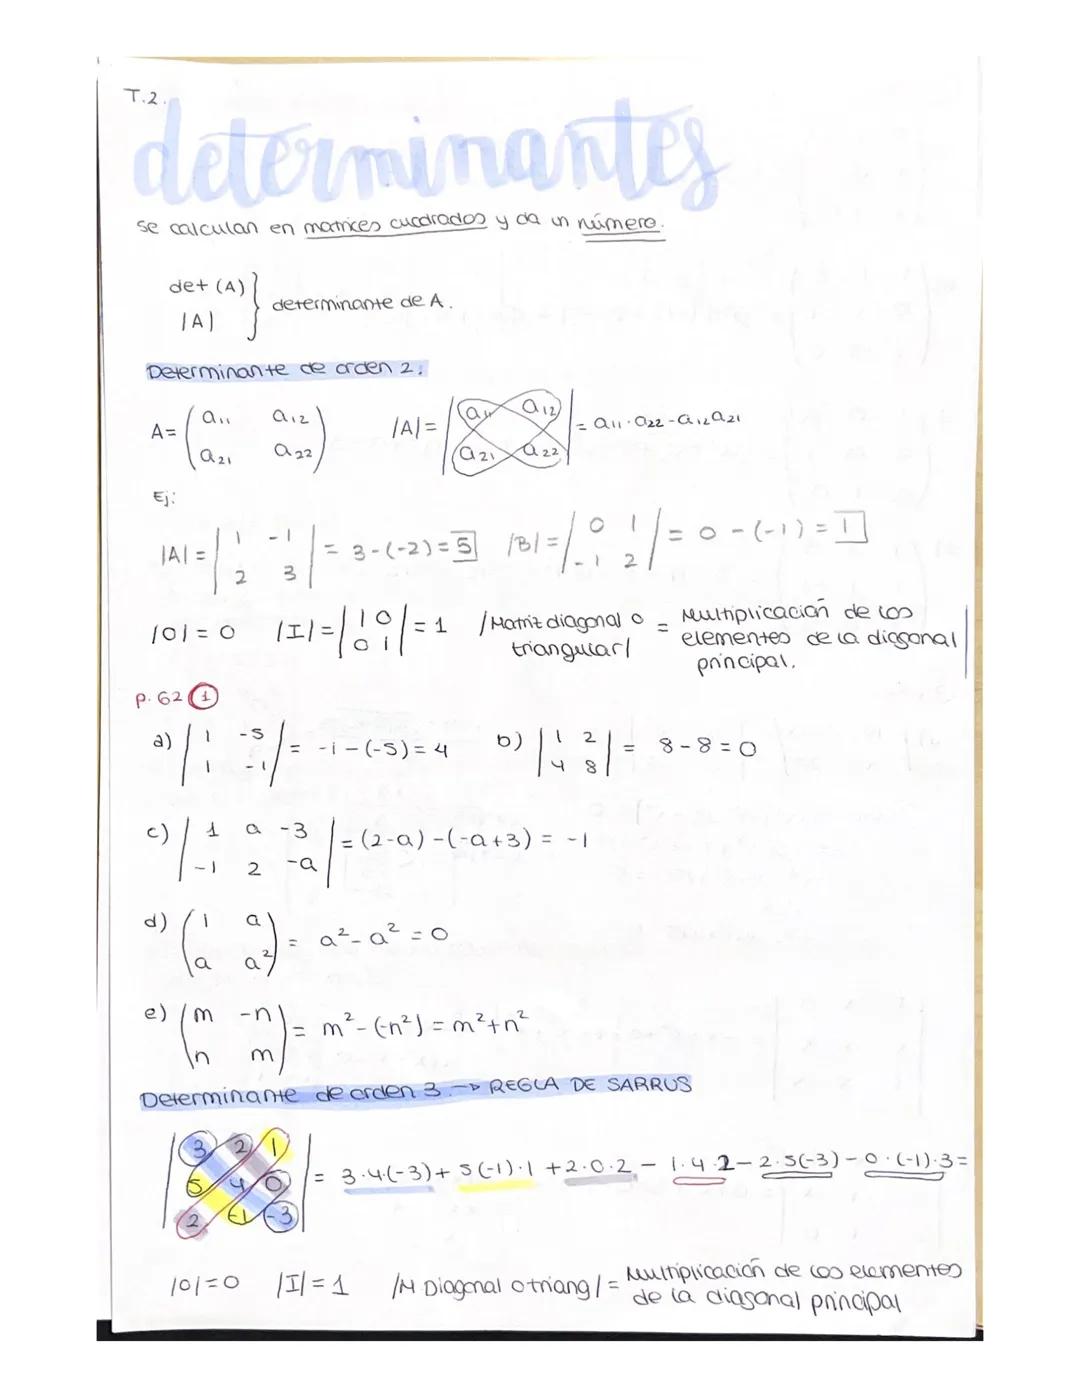 T.2.
determinantes
se calculan en matrices cuadrados y da un número.
det (A)
|A|
} determinante de A.
Determinante de orden 2:
A = ( a11 a12
a21 a22 )
|A| = | a11 a12
a21 a22 | = a11·a22 - a12a21
Ej:
|A| = | 1 -1
2 3 | = 3-(-2) = 5
|B| = | 0 1
-1 2 | = 0-(-1) = 1
|0| = 0
|I| = | 1 0
0 1 | = 1
|Matriz diagonal o triangular| = Multiplicación de los elementos de la diagonal principal.
p. 62 1
a) | 1 -5
1 -1 | = -1-(-5) = 4
b) | 1 2
4 8 | = 8-8 = 0
c) | 1 a -3
-1 2 -a | = (2-a)-(-a+3) = -1
d) ( 1 a
a a² ) = a²-a² = 0
e) ( m -n
n m ) = m²-(-n²) = m²+n²
Determinante de orden 3. → REGLA DE SARRUS
| 3 2 1
5 4 0
2 -1 -3 | = 3·4·(-3) + 5(-1)·1 + 2·0·2 - 1·4·2 - 2·5(-3) - 0·(-1)·3 =
|0| = 0 |I| = 1 |M Diagonal o triang| = Multiplicación de los elementos
de la diagonal principal